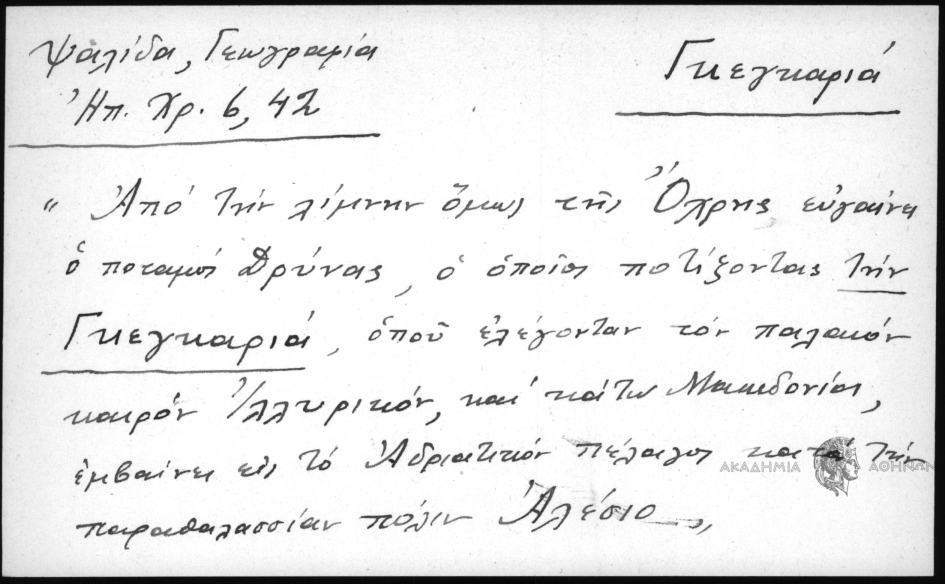 Ψαλίδα, Γεωγραφία
Ἠπ. Χρ. 6, 42
Γκεγκαριά
"Ἀπό τήν λίμνην ὅμως τῆς Ὄχρης εὐγαίνει
ὁ ποταμός Δρύνας, ὁ ὁποῖος ποτίζοντας τήν
Γκεγκαριά, ὁποῦ ἐλέγονταν τόν παλαιόν
καιρόν Ἰλλυρικόν, καί κάτω Μακεδονίας,
ἐμβαίνει εἰς τό Ἀδριατικόν πέλαγος κατά τήν
παραθαλασσίαν πόλιν Ἀλέσιο",
ΑΚΑΔΗΜΙΑ ΑΘΗΝΩΝ